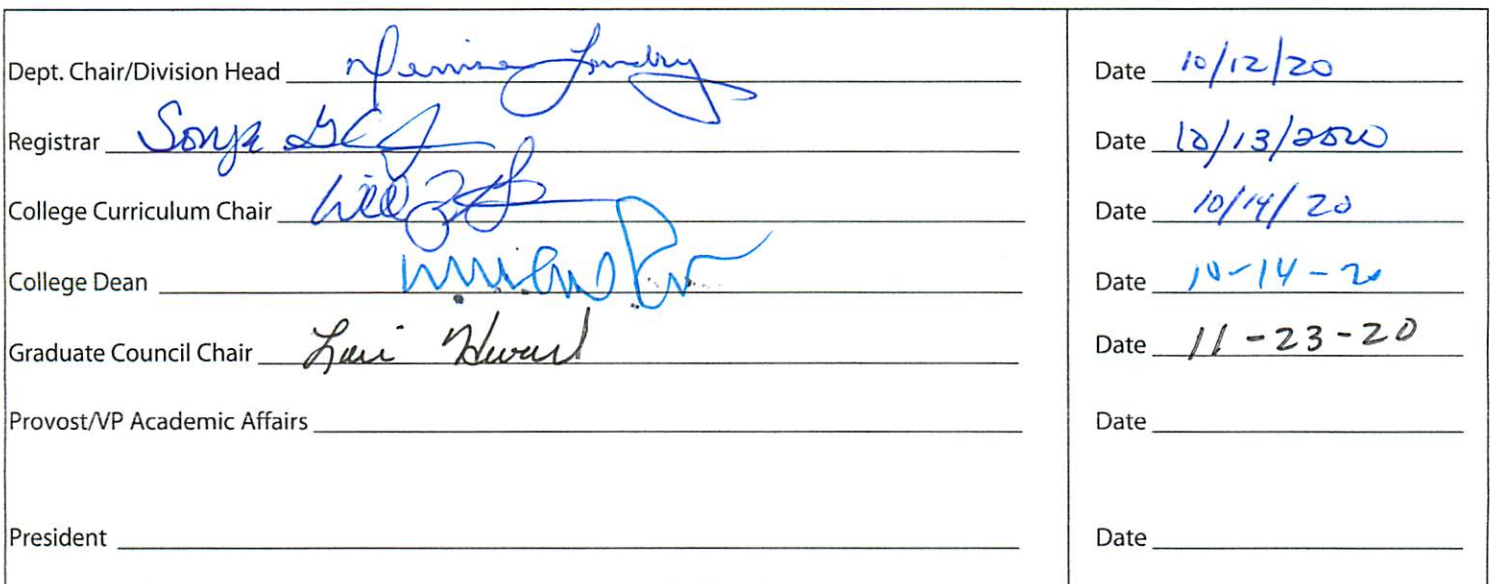 Dept. Chair/Division Head Date 10/12/20
Registrar Sonya Date 10/13/2020
College Curriculum Chair Date 10/14/20
College Dean Date 10-14-20
Graduate Council Chair Lari Date 11-23-20
Provost/VP Academic Affairs Date
President Date